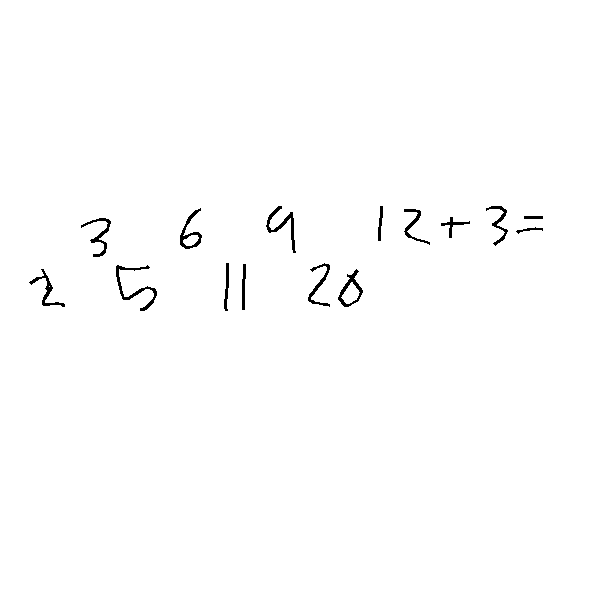 3 6 9 12+3=
2 5 11 20